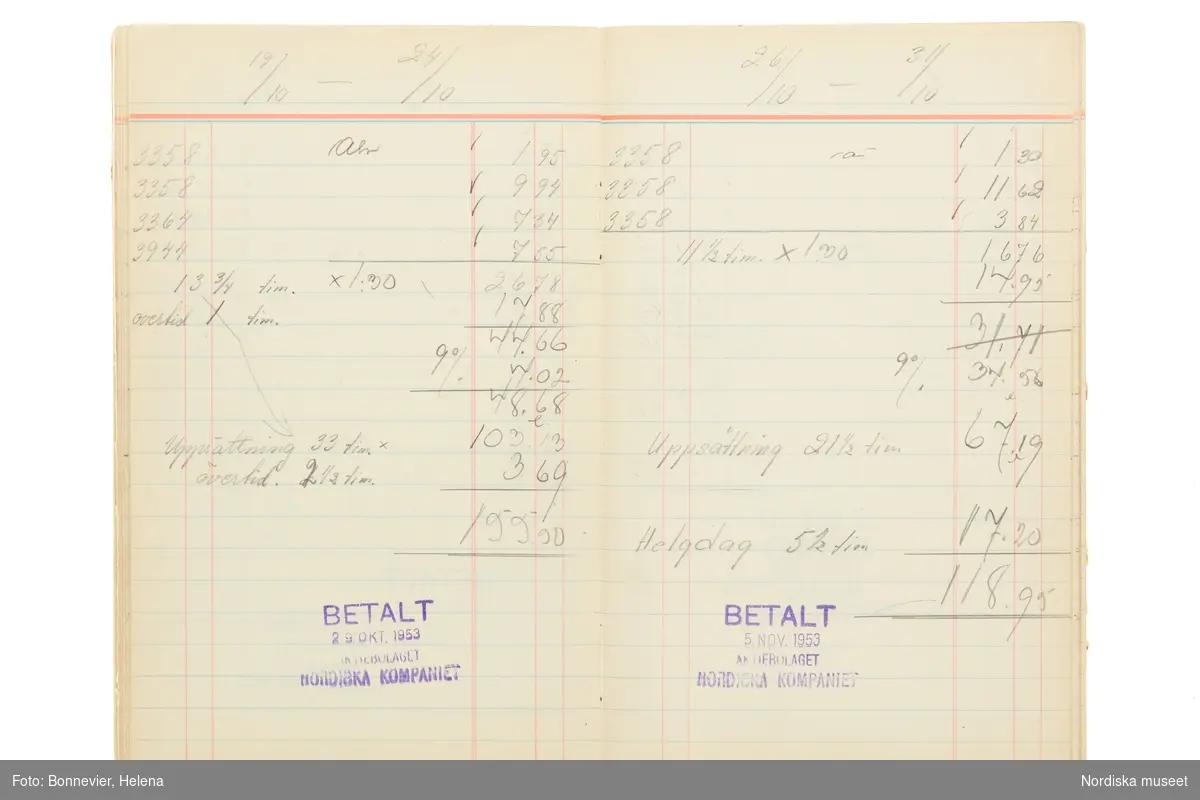 19/10 — 24/10
3358 1 95
3358 9 94
3364 7 34
3944 7 55
13 3/4 tim. × 1:30 26 78
17 88
övertid 1 tim.
44.66
9% 4.02
48.68
Uppsättning 33 tim × 103.13
övertid. 2 1/2 tim. 3 69
155.50
BETALT
29 OKT. 1953
AKTIEBOLAGET
NORDISKA KOMPANIET
26/10 — 31/10
3358 1 30
3358 11 62
3358 3 84
11 1/2 tim. × 1:30 16 76
14.95
31.71
9% 34.56
Uppsättning 21 1/2 tim 67.19
Helgdag 5 1/2 tim 17.20
118.95
BETALT
5. NOV. 1953
AKTIEBOLAGET
NORDISKA KOMPANIET
Foto: Bonnevier, Helena
Nordiska museet